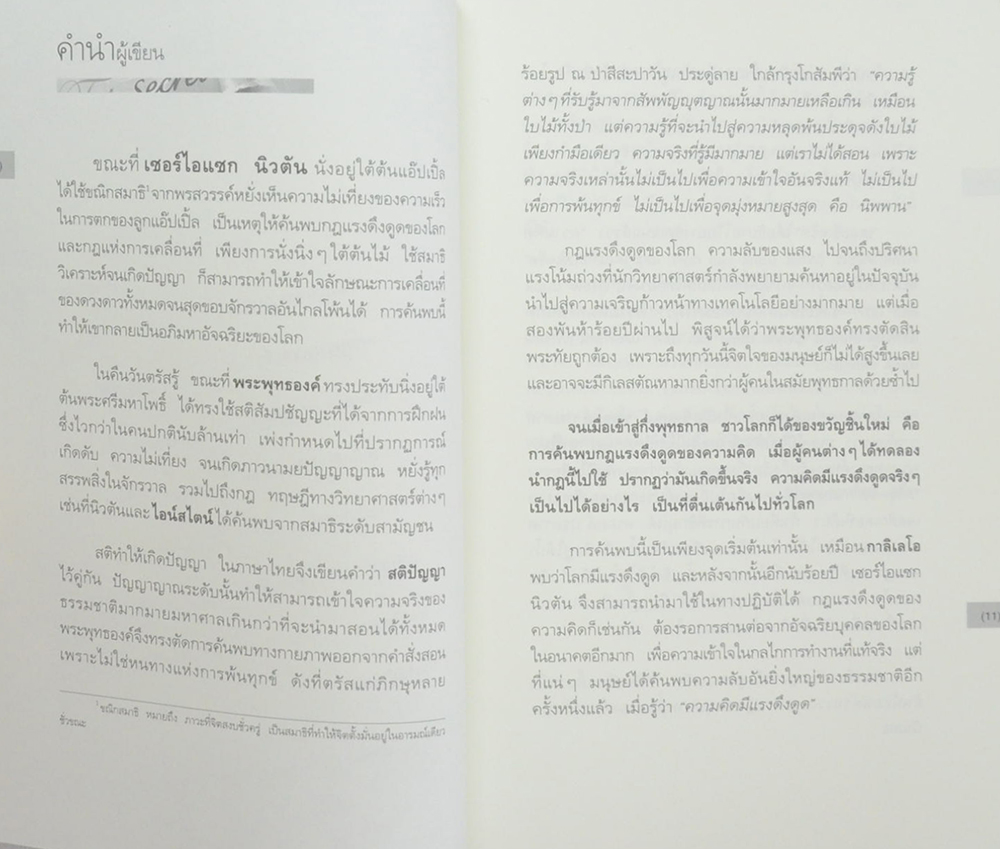 คำนำผู้เขียน
secret
ขณะที่ เซอร์ไอแซก นิวตัน นั่งอยู่ใต้ต้นแอ๊ปเปิ้ล
ได้ใช้ขณิกสมาธิ¹จากพรสวรรค์หยั่งเห็นความไม่เที่ยงของความเร็ว
ในการตกของลูกแอ๊ปเปิ้ล เป็นเหตุให้ค้นพบกฎแรงดึงดูดของโลก
และกฎแห่งการเคลื่อนที่ เพียงการนั่งนิ่งๆ ใต้ต้นไม้ ใช้สมาธิ
วิเคราะห์จนเกิดปัญญา ก็สามารถทำให้เข้าใจลักษณะการเคลื่อนที่
ของดวงดาวทั้งหมดจนสุดขอบจักรวาลอันไกลโพ้นได้ การค้นพบนี้
ทำให้เขากลายเป็นอภิมหาอัจฉริยะของโลก
ในคืนวันตรัสรู้ ขณะที่ พระพุทธองค์ ทรงประทับนิ่งอยู่ใต้
ต้นพระศรีมหาโพธิ์ ได้ทรงใช้สติสัมปชัญญะที่ได้จากการฝึกฝน
ซึ่งไวกว่าในคนปกตินับล้านเท่า เพ่งกำหนดไปที่ปรากฏการณ์
เกิดดับ ความไม่เที่ยง จนเกิดภาวนามยปัญญาญาณ หยั่งรู้ทุก
สรรพสิ่งในจักรวาล รวมไปถึงกฎ ทฤษฎีทางวิทยาศาสตร์ต่างๆ
เช่นที่นิวตันและไอน์สไตน์ ได้ค้นพบจากสมาธิระดับสามัญชน
สติทำให้เกิดปัญญา ในภาษาไทยจึงเขียนคำว่า สติปัญญา
ไว้คู่กัน ปัญญาญาณระดับนั้นทำให้สามารถเข้าใจความจริงของ
ธรรมชาติมากมายมหาศาลเกินกว่าที่จะนำมาสอนได้ทั้งหมด
พระพุทธองค์จึงทรงตัดการค้นพบทางกายภาพออกจากคำสั่งสอน
เพราะไม่ใช่หนทางแห่งการพ้นทุกข์ ดังที่ตรัสแก่ภิกษุหลาย
¹ขณิกสมาธิ หมายถึง ภาวะที่จิตสงบชั่วครู่ เป็นสมาธิที่ทำให้จิตตั้งมั่นอยู่ในอารมณ์เดียว
ชั่วขณะ
ร้อยรูป ณ ป่าสีสะปาวัน ประดู่ลาย ใกล้กรุงโกสัมพีว่า “ความรู้
ต่างๆ ที่รับรู้มาจากสัพพัญญุตญาณนั้นมากมายเหลือเกิน เหมือน
ใบไม้ทั้งป่า แต่ความรู้ที่จะนำไปสู่ความหลุดพ้นประดุจดังใบไม้
เพียงกำมือเดียว ความจริงที่รู้มีมากมาย แต่เราไม่ได้สอน เพราะ
ความจริงเหล่านั้นไม่เป็นไปเพื่อความเข้าใจอันจริงแท้ ไม่เป็นไป
เพื่อการพ้นทุกข์ ไม่เป็นไปเพื่อจุดมุ่งหมายสูงสุด คือ นิพพาน”
กฎแรงดึงดูดของโลก ความลับของแสง ไปจนถึงปริศนา
แรงโน้มถ่วงที่นักวิทยาศาสตร์กำลังพยายามค้นหาอยู่ในปัจจุบัน
นำไปสู่ความเจริญก้าวหน้าทางเทคโนโลยีอย่างมากมาย แต่เมื่อ
สองพันห้าร้อยปีผ่านไป พิสูจน์ได้ว่าพระพุทธองค์ทรงตัดสิน
พระทัยถูกต้อง เพราะถึงทุกวันนี้จิตใจของมนุษย์ก็ไม่ได้สูงขึ้นเลย
และอาจจะมีกิเลสตัณหามากยิ่งกว่าผู้คนในสมัยพุทธกาลด้วยซ้ำไป
จนเมื่อเข้าสู่กึ่งพุทธกาล ชาวโลกก็ได้ของขวัญชิ้นใหม่ คือ
การค้นพบกฎแรงดึงดูดของความคิด เมื่อผู้คนต่างๆ ได้ทดลอง
นำกฎนี้ไปใช้ ปรากฏว่ามันเกิดขึ้นจริง ความคิดมีแรงดึงดูดจริงๆ
เป็นไปได้อย่างไร เป็นที่ตื่นเต้นกันไปทั่วโลก
การค้นพบนี้เป็นเพียงจุดเริ่มต้นเท่านั้น เหมือน กาลิเลโอ
พบว่าโลกมีแรงดึงดูด และหลังจากนั้นอีกนับร้อยปี เซอร์ไอแซก
นิวตัน จึงสามารถนำมาใช้ในทางปฏิบัติได้ กฎแรงดึงดูดของ
ความคิดก็เช่นกัน ต้องรอการสานต่อจากอัจฉริยบุคคลของโลก
ในอนาคตอีกมาก เพื่อความเข้าใจในกลไกการทำงานที่แท้จริง แต่
ที่แน่ๆ มนุษย์ได้ค้นพบความลับอันยิ่งใหญ่ของธรรมชาติอีก
ครั้งหนึ่งแล้ว เมื่อรู้ว่า “ความคิดมีแรงดึงดูด”
(11)